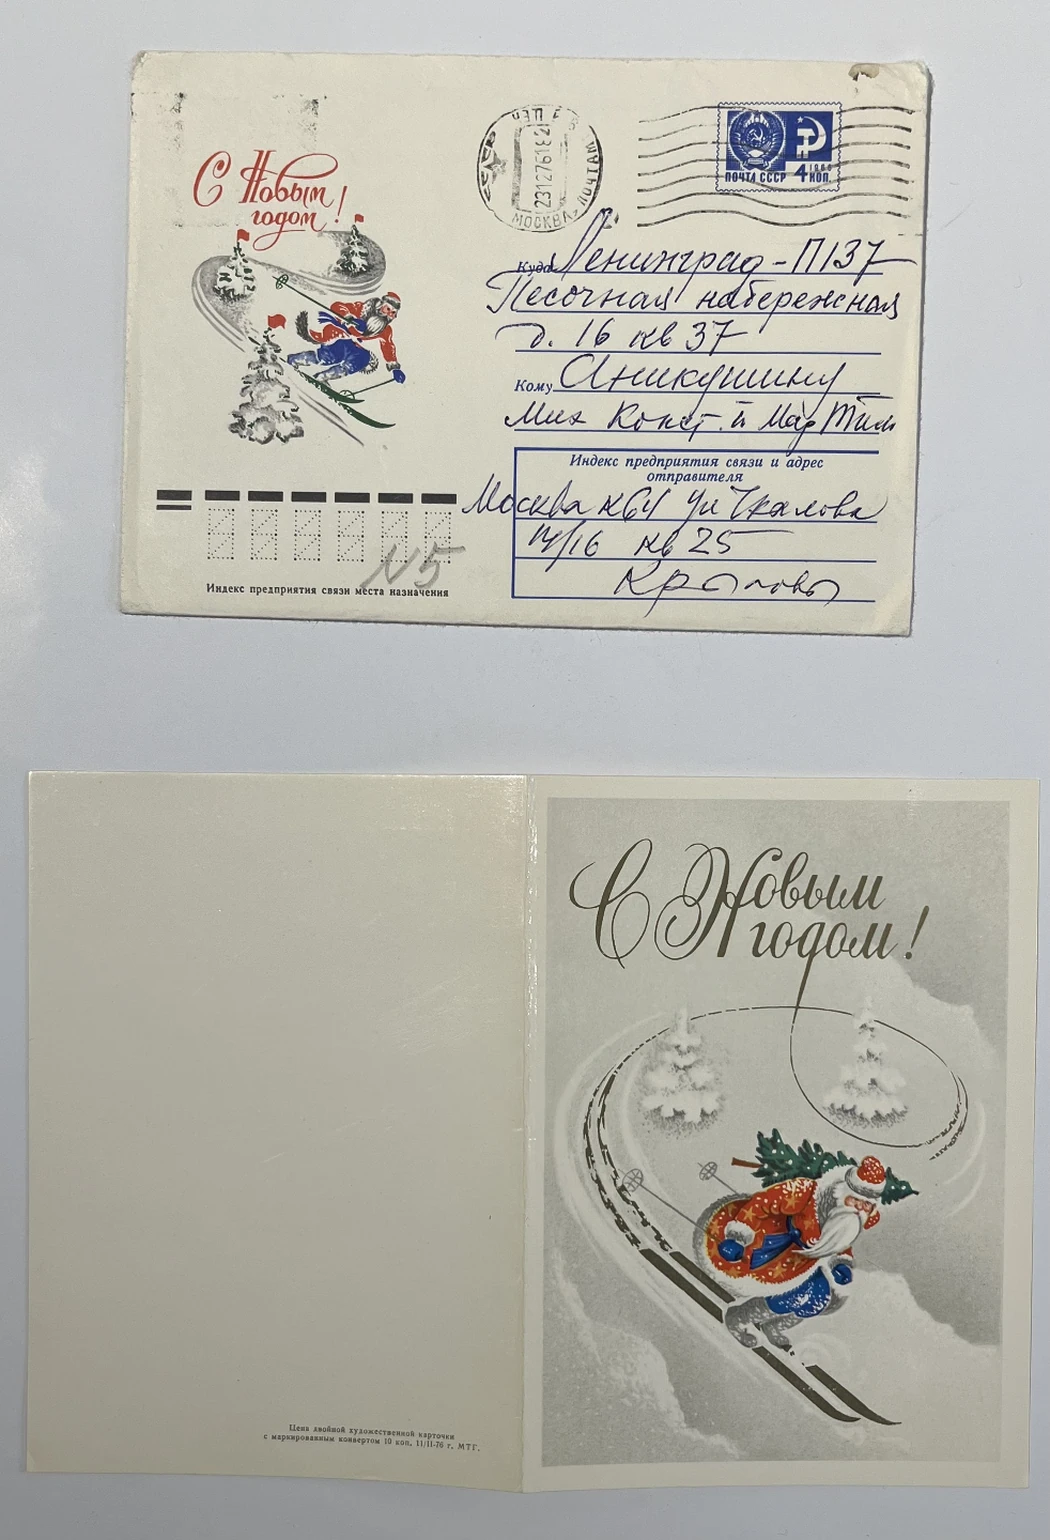 С Новым
годом!
МОСКВА
ПОЧТАМТ
231276182
ПОЧТА СССР 4 КОП.
1966
Куда Ленинград-П137
Песочная набережная
д. 16 кв 37
Кому Аникушину
Мих Конст. и Мар Тим
Индекс предприятия связи и адрес
отправителя
Москва К64 ул Чкалова
14/16 кв 25
Крыловы
N5
Индекс предприятия связи места назначения
С Новым
годом!
Цена двойной художественной карточки
с маркированным конвертом 10 коп. 11/II-76 г. МТГ.